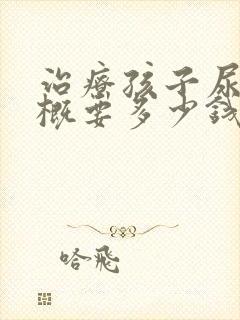 治療孩子尿
概要多少錢
哈飛